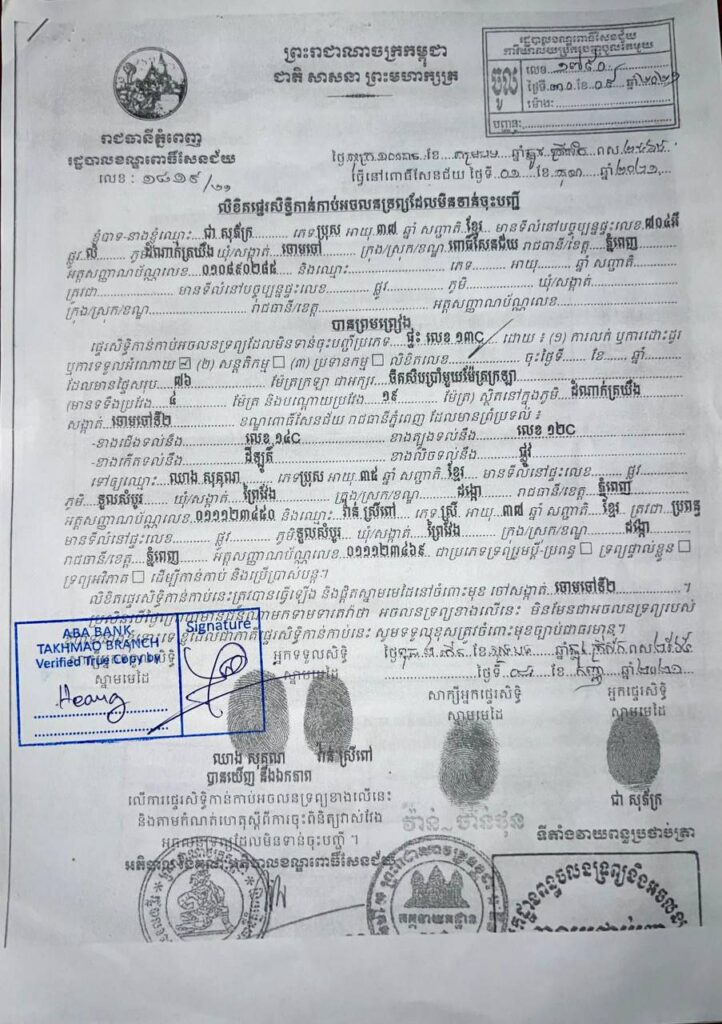 ព្រះរាជាណាចក្រកម្ពុជា
ជាតិ សាសនា ព្រះមហាក្សត្រ
រដ្ឋបាលខណ្ឌពោធិ៍សែនជ័យ
ការិយាល័យច្រកចេញចូលតែមួយ
ចូល
លេខ ១៧៩០
ថ្ងៃទី ៣១ ខែ ០៥ ឆ្នាំ ២០២១
ម៉ោង:
បញ្ជូន:
រាជធានីភ្នំពេញ
រដ្ឋបាលខណ្ឌពោធិ៍សែនជ័យ
លេខ : ១៨១៩/២១
ធ្វើនៅពោធិ៍សែនជ័យ ថ្ងៃទី ០១ ខែ មិថុនា ឆ្នាំ ២០២១
លិខិតផ្ទេរសិទ្ធិកាន់កាប់អចលនទ្រព្យដែលមិនទាន់ចុះបញ្ជី
ខ្ញុំបាទ-នាងខ្ញុំឈ្មោះ ជា សុភ័ក្រ ភេទ ប្រុស អាយុ ៣៧ ឆ្នាំ សញ្ជាតិ ខ្មែរ មានទីលំនៅបច្ចុប្បន្នផ្ទះលេខ ៧០៤អឺ
ផ្លូវ លំ ភូមិ ដំណាក់ត្រយឹង ឃុំ/សង្កាត់ ចោមចៅ ក្រុង/ស្រុក/ខណ្ឌ ពោធិ៍សែនជ័យ រាជធានី/ខេត្ត ភ្នំពេញ
អត្តសញ្ញាណប័ណ្ណលេខ ០១០៩៩០២៨៥ និងឈ្មោះ ភេទ អាយុ ឆ្នាំ សញ្ជាតិ
ត្រូវជា មានទីលំនៅបច្ចុប្បន្នផ្ទះលេខ ផ្លូវ ភូមិ ឃុំ/សង្កាត់
ក្រុង/ស្រុក/ខណ្ឌ រាជធានី/ខេត្ត អត្តសញ្ញាណប័ណ្ណលេខ
បានព្រមព្រៀង
ផ្ទេរសិទ្ធិកាន់កាប់អចលនទ្រព្យដែលមិនទាន់ចុះបញ្ជីប្រភេទ ផ្ទះ លេខ ១៣C ដោយ ៖ (១) ការលក់ ឬការដោះដូរ
ឬការទទួលអំណោយ ☑ (២) សន្តតិកម្ម ☐ (៣) ប្រទានកម្ម ☐ លិខិតលេខ ចុះថ្ងៃទី ខែ ឆ្នាំ
ដែលមានផ្ទៃសរុប ៧៦ ម៉ែត្រក្រឡា ជាអក្សរ ចិតសិបប្រាំមួយម៉ែត្រក្រឡា
(មានទទឹងប្រវែង ៤ ម៉ែត្រ និងបណ្តោយប្រវែង ១៩ ម៉ែត្រ) ស្ថិតនៅក្នុងភូមិ ដំណាក់ត្រយឹង
សង្កាត់ ចោមចៅទី២ ខណ្ឌពោធិ៍សែនជ័យ រាជធានីភ្នំពេញ ដែលមានព្រំប្រទល់ ៖
-ខាងជើងទល់នឹង លេខ ១៤C -ខាងត្បូងទល់នឹង លេខ ១២C
-ខាងកើតទល់នឹង ដីឡូតិ៍ -ខាងលិចទល់នឹង ផ្លូវ
ទៅឲ្យឈ្មោះ ឈាង សុគុណ ភេទ ប្រុស អាយុ ៣៥ ឆ្នាំ សញ្ជាតិ ខ្មែរ មានទីលំនៅផ្ទះលេខ ផ្លូវ
ភូមិ ទួលសំបូរ ឃុំ/សង្កាត់ ព្រៃវែង ក្រុង/ស្រុក/ខណ្ឌ ដង្កោ រាជធានី/ខេត្ត ភ្នំពេញ
អត្តសញ្ញាណប័ណ្ណលេខ ០១១១២៣៤៥០ និងឈ្មោះ វ៉ាន់ ស្រីពៅ ភេទ ស្រី អាយុ ៣៧ ឆ្នាំ សញ្ជាតិ ខ្មែរ ត្រូវជា ប្រពន្ធ
មានទីលំនៅផ្ទះលេខ ផ្លូវ ភូមិ ទួលសំបូរ ឃុំ/សង្កាត់ ព្រៃវែង ក្រុង/ស្រុក/ខណ្ឌ ដង្កោ
រាជធានី/ខេត្ត ភ្នំពេញ អត្តសញ្ញាណប័ណ្ណលេខ ០១១១២៣៤៦៩ ជាប្រភេទទ្រព្យរួមប្តី-ប្រពន្ធ ☐ ទ្រព្យផ្ទាល់ខ្លួន ☐
ទ្រព្យអវិភាគ ☐ ដើម្បីកាន់កាប់ និងប្រើប្រាស់បន្ត។
លិខិតផ្ទេរសិទ្ធិកាន់កាប់នេះត្រូវបានធ្វើឡើង និងផ្តិតស្នាមមេដៃនៅចំពោះមុខ ចៅសង្កាត់ ចោមចៅទី២ ។
អចលនទ្រព្យខាងលើនេះ មិនមែនជាអចលនទ្រព្យរបស់
ផ្ទេរសិទ្ធិកាន់កាប់នេះ សូមទទួលខុសត្រូវចំពោះមុខច្បាប់ជាធរមាន។
ABA BANK
TAKHMAO BRANCH
Verified True Copy by
Signature
Heang
ស្នាមមេដៃ
អ្នកទទួលសិទ្ធិ
ស្នាមមេដៃ
សាក្សីអ្នកផ្ទេរសិទ្ធិ
ស្នាមមេដៃ
អ្នកផ្ទេរសិទ្ធិ
ស្នាមមេដៃ
ឈាង សុគុណ វ៉ាន់ ស្រីពៅ
ជា សុភ័ក្រ
បានឃើញ និងឯកភាព
លើការផ្ទេរសិទ្ធិកាន់កាប់អចលនទ្រព្យខាងលើនេះ
និងតាមកំណត់ហេតុស្តីពីការចុះពិនិត្យវាស់វែង
អចលនទ្រព្យដែលមិនទាន់ចុះបញ្ជី ។
ទីតាំងវាយពន្ធប្រថាប់ត្រា
អភិបាលខណ្ឌពោធិ៍សែនជ័យ